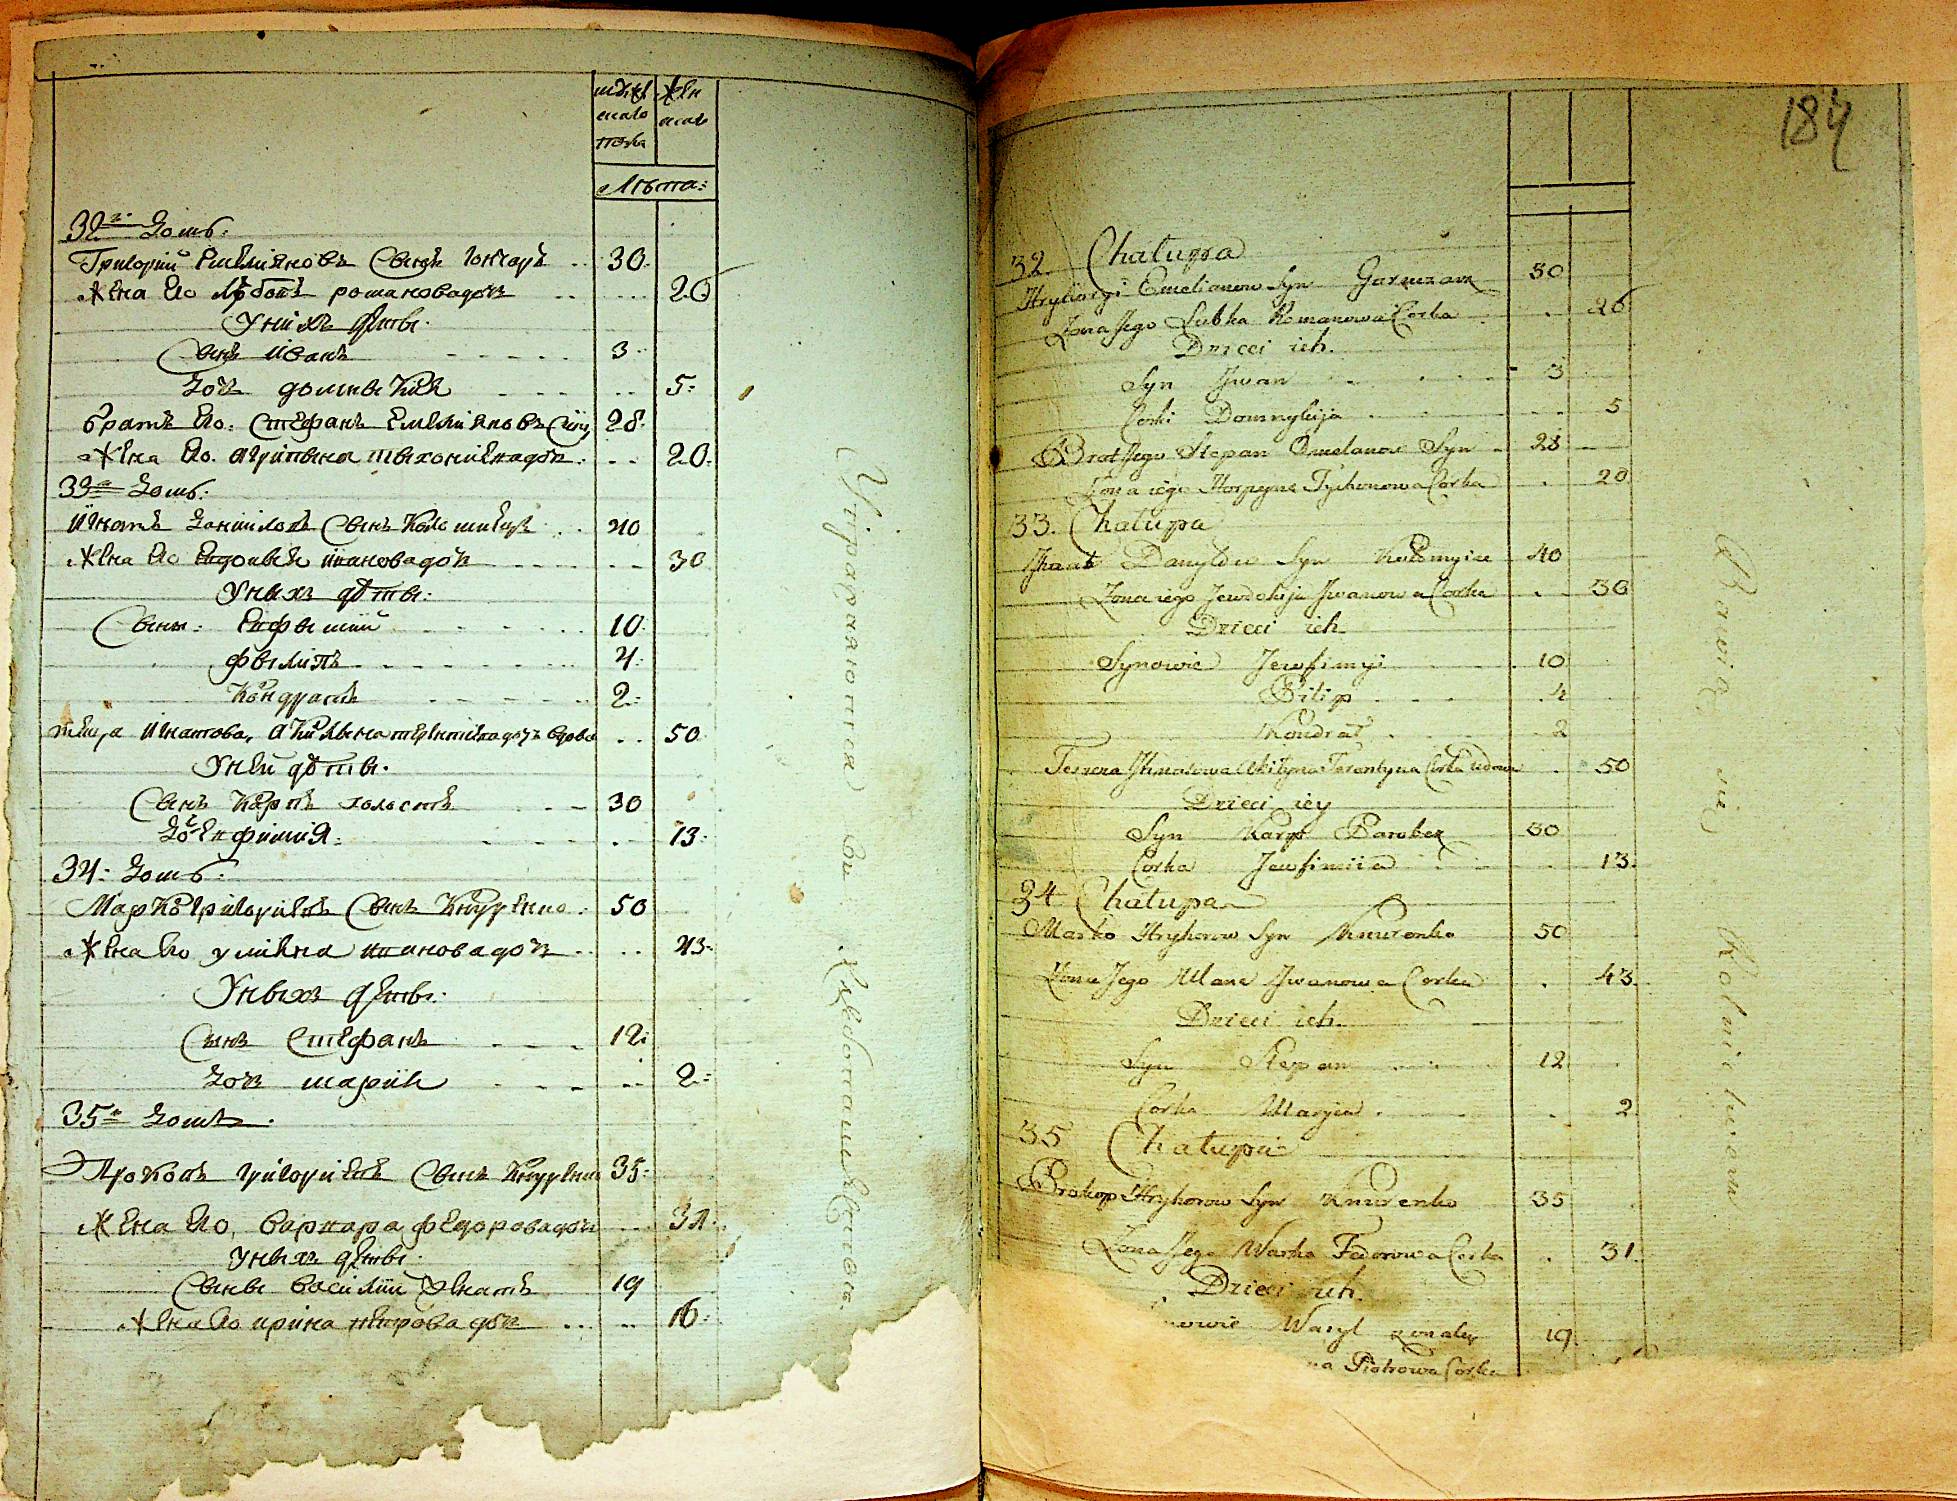 мужс
каго
пола
жен
скаго
Лѣта:
32й Домъ:
Григорий Емелияновъ Сынъ Гончаръ 30
Жена Его Любовъ романовадочь 26
Унихъ дѣти
Сынъ иванъ 3
Дочь домникия 5
братъ Его Стефанъ Емелияновъ Сынъ 28
Жена Его агрипина тихониевадочь 20
33й Домъ:
Игнатъ Даниловъ Сынъ Коломиецъ 40
Жена Его Евдокия ивановадочь 30
Унихъ дѣти:
Сыны Евфимий 10
филипъ 4
Кондратъ 2
теща Игнатова, Акилина терентиевадочь вдова 50
Уней дѣти
Сынъ Карпъ холостъ 30
Дочь Евфимия 13
34: Домъ
Марко Григориевъ Сынъ Кнуренко 50
Жена Его улияна ивановадочь 43
Унихъ дѣти
Сынъ Стефанъ 12
Дочь мария 2
35й Домъ
Прокопъ григориевъ Сынъ Кнуренко 35
Жена Его, варвара федоровадочь 31
Унихъ дѣти
Сыны василий женатъ 19
Жена Его ирина петровадочь 16
Упражняются въ хлебопашественъ
184
32. Chałupa
Hryhoryi Emelianow Syn Garnczarz 30
Zona Jego Lubka Romanowa Corka 26
Dzieci ich.
Syn Jwan 3
Corki Domnykija 5
Brat Jego Stepan Omelanow Syn 28
Zona iego Horpyna Tychonowa Corka 20
33. Chałupa
Jhnat Danyłow Syn Kołomyiec 40
Zona iego Jewdokija Jwanowa Corka 30
Dzieci ich
Synowie Jewfimyi 10
Pilip 4
Kondrat 2
Teszcza Jhnatowa Akilyna Terentyna Corka wdowa 50
Dzieci iey
Syn Karp Parobek 30
Corka Jewfimiia 13
34 Chałupa
Marko Hryhorow Syn Knurenko 50
Zona Jego Ulana Jwanowa Corka 43
Dzieci ich.
Syn Stepan 12
Corka Maryia 2
35 Chałupa
Prokop Hryhorow Syn Knurenko 35
Zona Jego Warka Fedorowa Corka 31
Dzieci ich.
nowie Wasyl zonaty 19
na Piotrowa Corka
Bawią się Rolnictwem